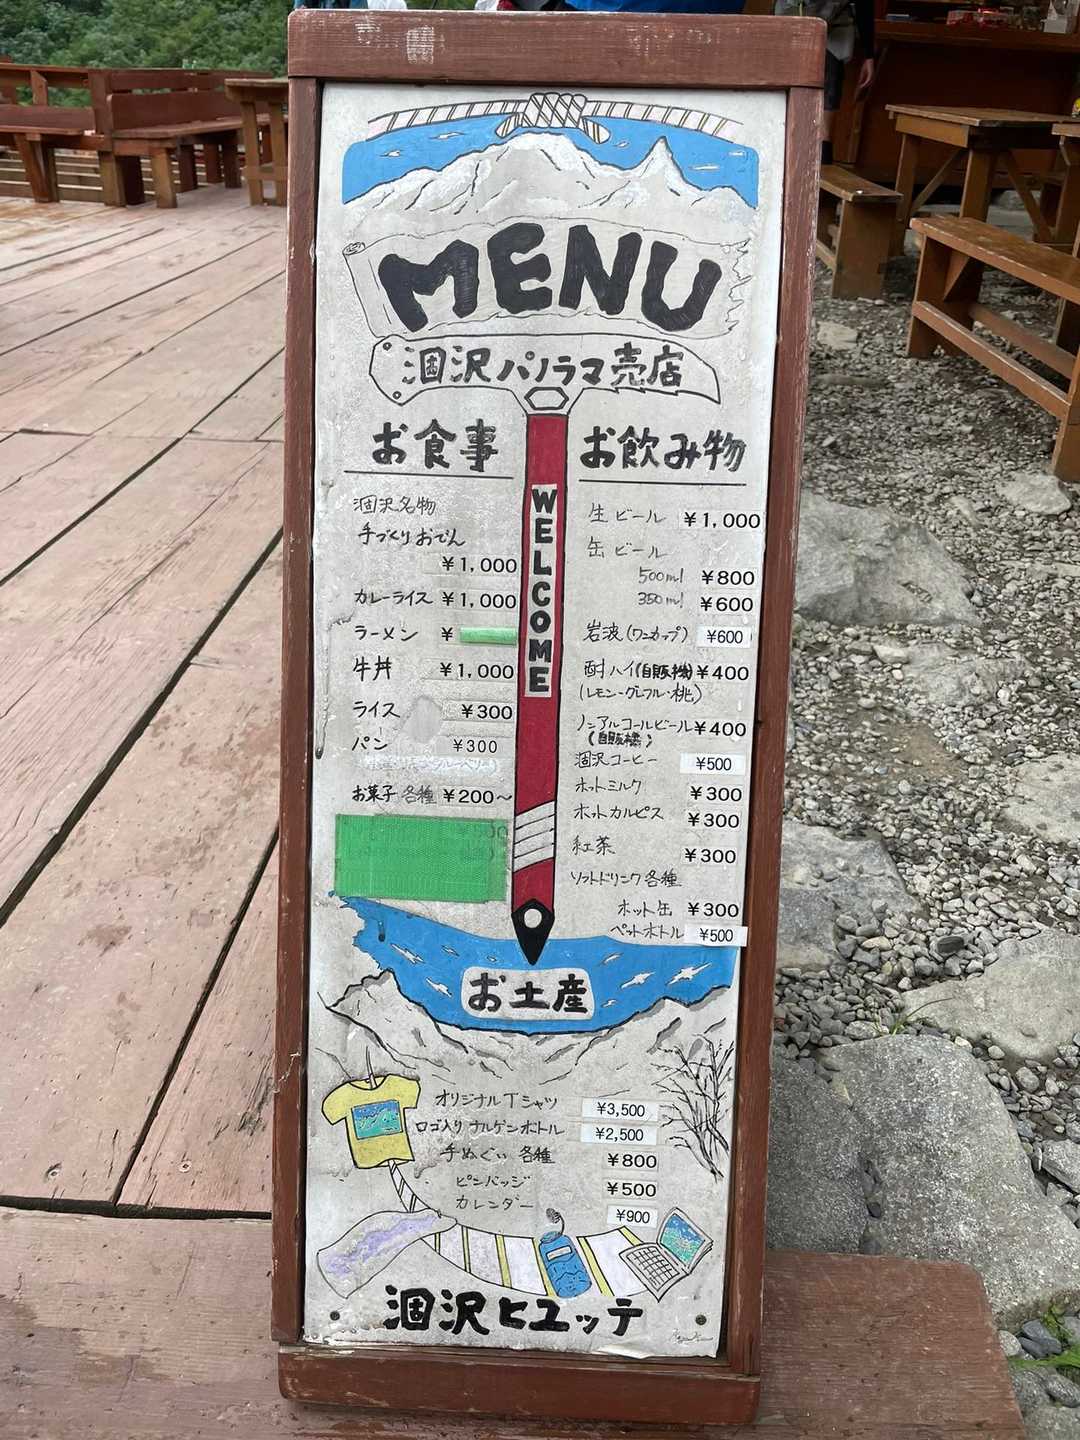 MENU
涸沢パノラマ売店
WELCOME
お食事
涸沢名物
手づくりおでん
¥1,000
カレーライス ¥1,000
ラーメン ¥
牛丼 ¥1,000
ライス ¥300
パン ¥300
お菓子 各種 ¥200〜
お飲み物
生ビール ¥1,000
缶ビール
500ml ¥800
350ml ¥600
岩波(ワンカップ) ¥600
酎ハイ(自販機) ¥400
(レモン・グレフル・桃)
ノンアルコールビール ¥400
(自販機)
涸沢コーヒー ¥500
ホットミルク ¥300
ホットカルピス ¥300
紅茶 ¥300
ソフトドリンク 各種
ホット缶 ¥300
ペットボトル ¥500
お土産
オリジナルTシャツ ¥3,500
ロゴ入りナルゲンボトル ¥2,500
手ぬぐい 各種 ¥800
ピンバッジ ¥500
カレンダー ¥900
涸沢ヒュッテ